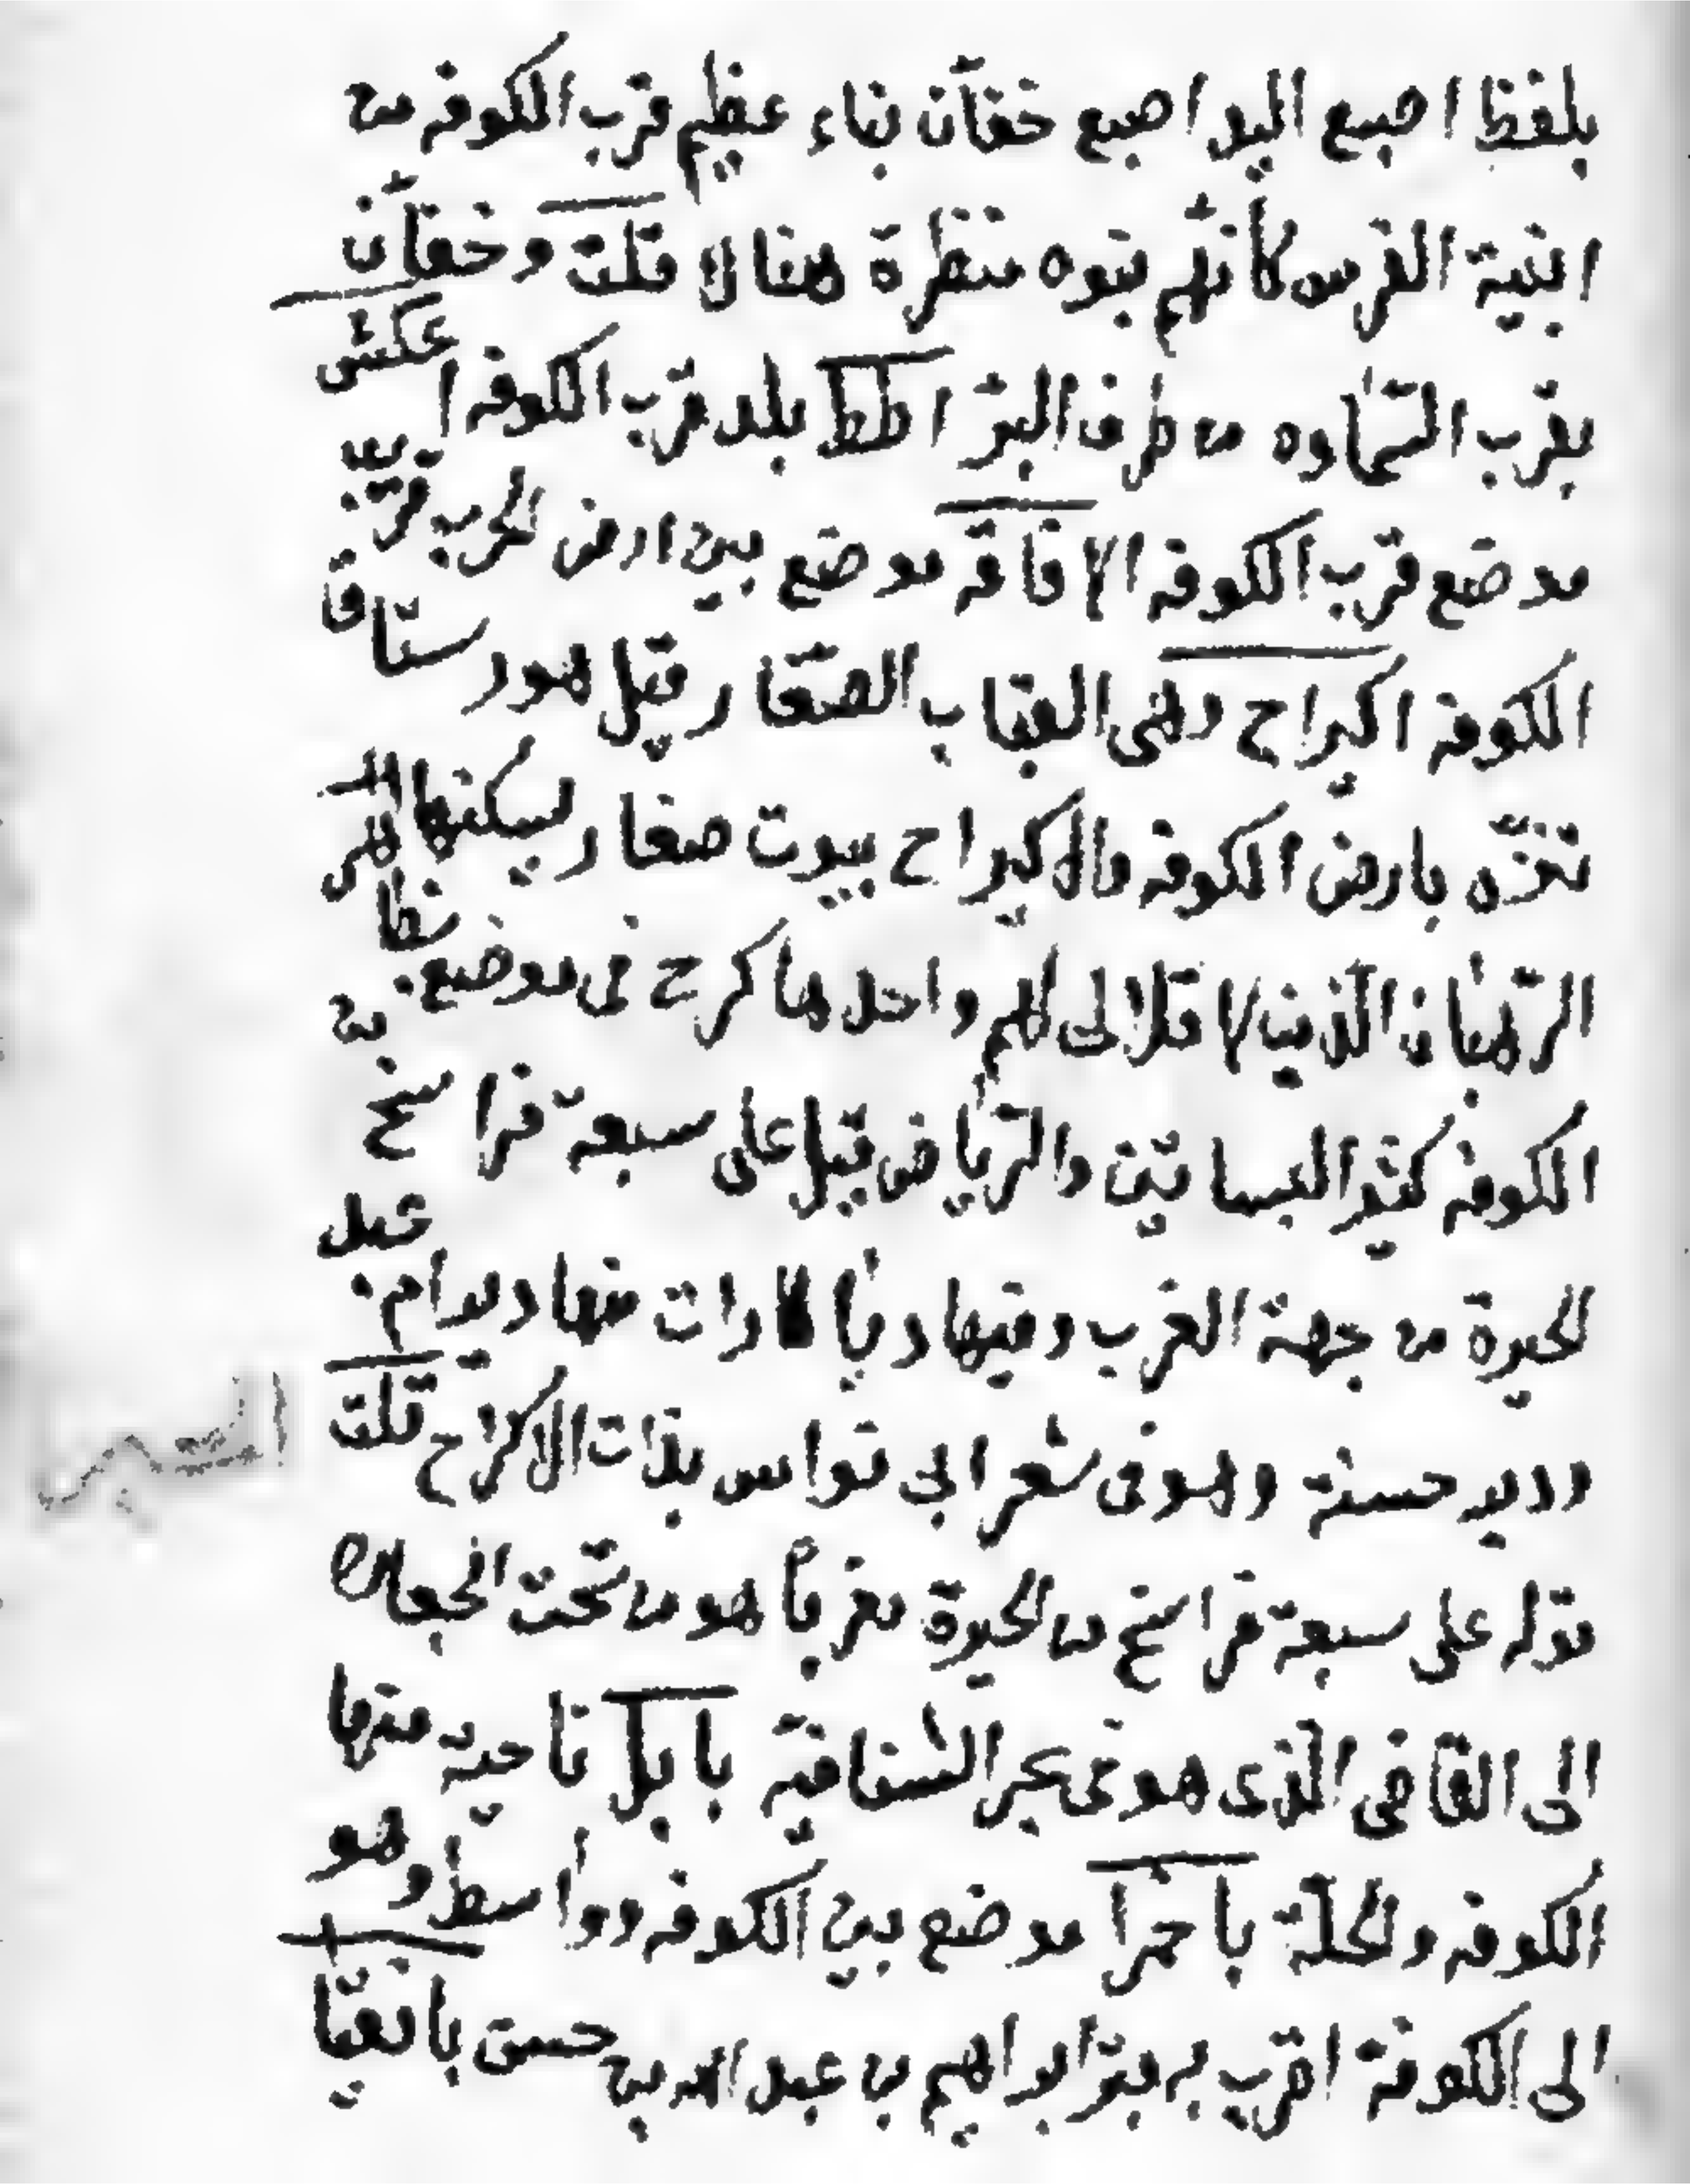 بلفظ اصبع اليد اصبع خفّان بناء عظيم قرب الكوفه من
ابنية الفرس كأنهم بنوه منظرة هناك قلت وخفّان
بقرب السّماوه من طرف البرّ اطط بلد قرب الكوفه اعكش
موضع قرب الكوفه الافاقه موضع بين ارض الحرب قرب
الكوفه اكيراح وهى القباب الصّغار قيل هو رستاق
نزّه بارض الكوفه والاكيراح بيوت صغار يسكنها
الرّهبان الّذين لا قلالى لهم واحدها كرح فى موضع بظاهر
الكوفه كثير البساتين والرّياض قيل على سبعة فراسخ من
الحيرة من جهة الغرب وفيها ديارات منها دير ام
ودير حسنة وهو فى شعر ابى نواس بذات الاكراح قلت
قوله على سبعة فراسخ من الحيرة مغرباً هو من تحت
الى القاضى الّذى هو فى بحر الشنافيّة بابل ناحية منها
الكوفه والحلّة باخمرا موضع بين الكوفه وواسط وهو
الى الكوفة اقرب به قبر ابراهيم بن عبد الله بن حسن بانقيا